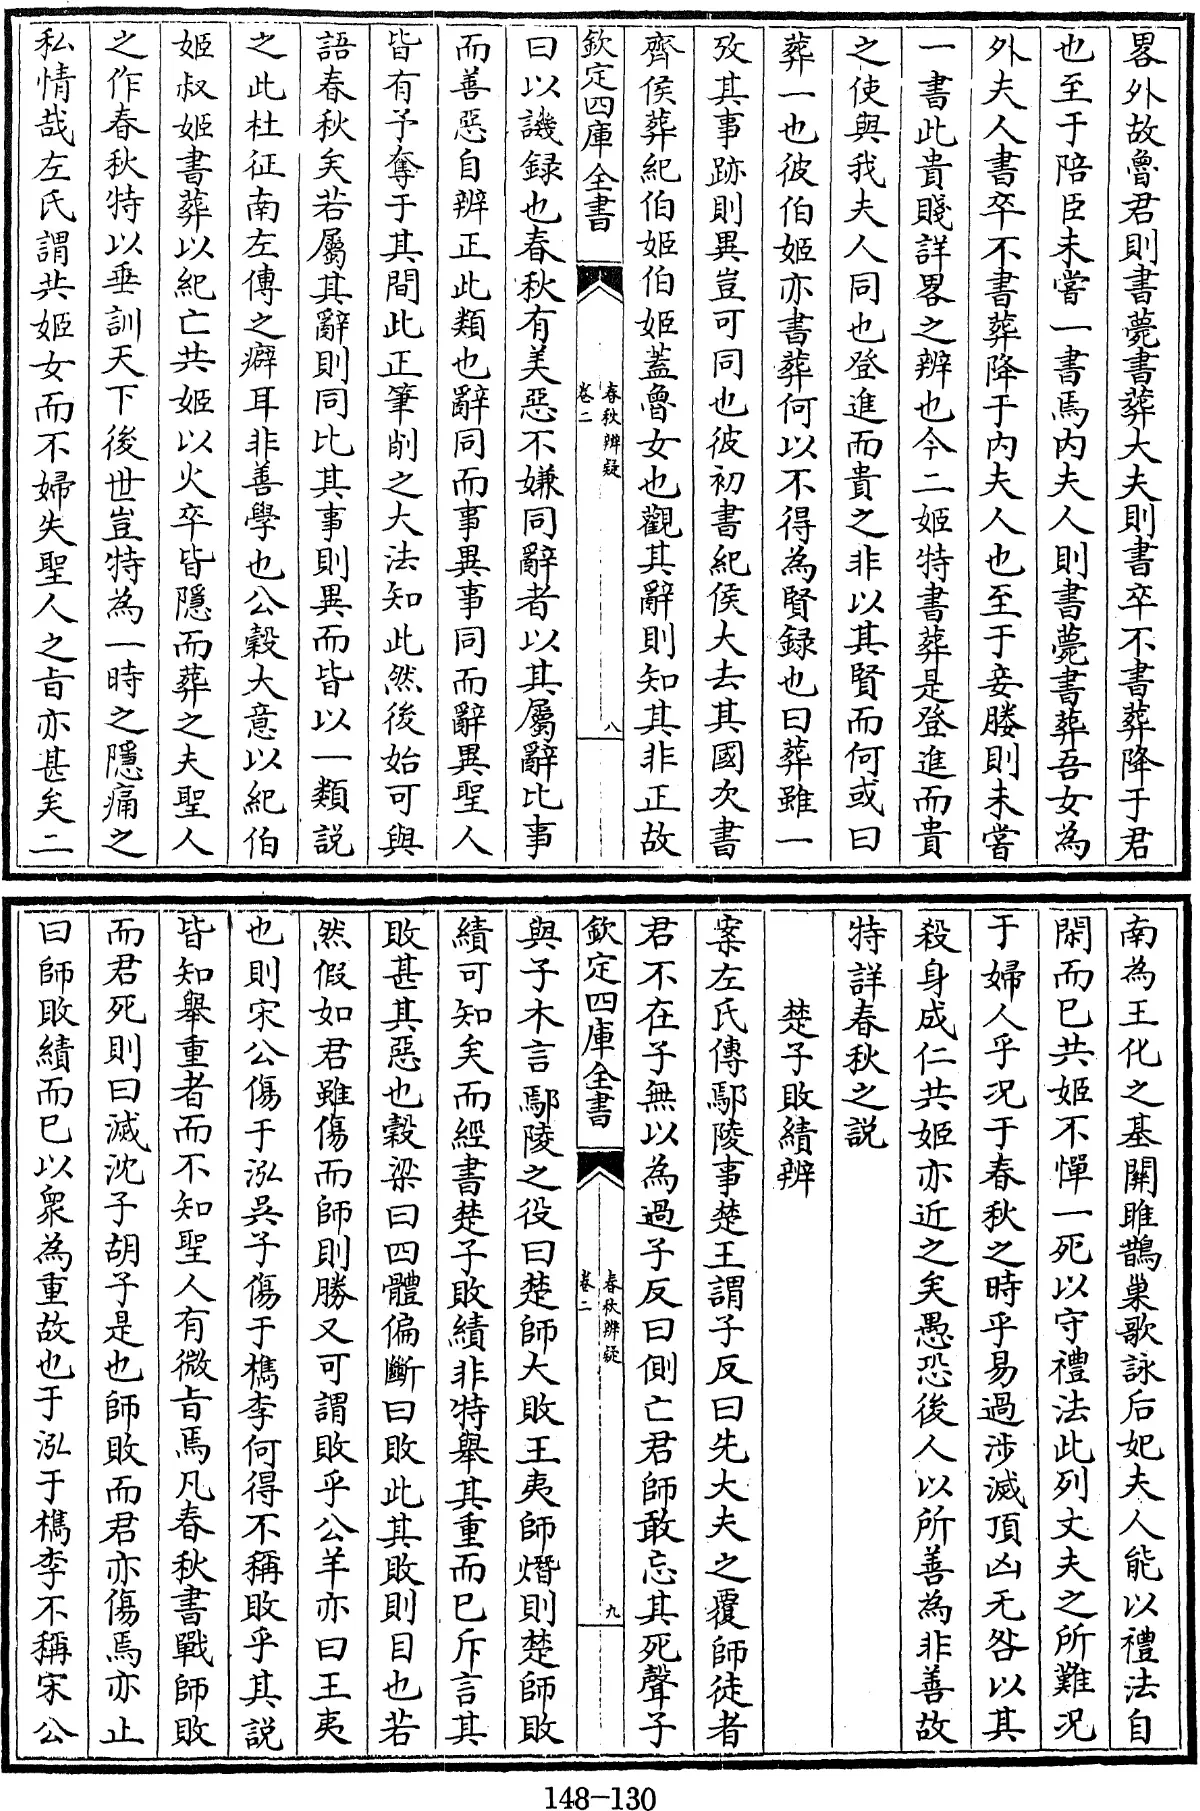 畧外故魯君則書薨書葬大夫則書卒不書葬降于君
也至于陪臣未嘗一書焉内夫人則書薨書葬吾女為
外夫人書卒不書葬降于内夫人也至于妾媵則未嘗
一書此貴賤詳畧之辨也今二姬特書葬是登進而貴
之使與我夫人同也登進而貴之非以其賢而何或曰
葬一也彼伯姬亦書葬何以不得為賢録也曰葬雖一
攷其事跡則異豈可同也彼初書紀侯大去其國次書
齊侯葬紀伯姬伯姬蓋魯女也觀其辭則知其非正故
欽定四庫全書
春秋辨疑
卷二
八
曰以譏録也春秋有美惡不嫌同辭者以其屬辭比事
而善惡自辨正此類也辭同而事異事同而辭異聖人
皆有予奪于其間此正筆削之大法知此然後始可與
語春秋矣若屬其辭則同比其事則異而皆以一類説
之此杜征南左傳之癖耳非善學也公穀大意以紀伯
姬叔姬書葬以紀亡共姬以火卒皆隱而葬之夫聖人
之作春秋特以垂訓天下後世豈特為一時之隱痛之
私情哉左氏謂共姬女而不婦失聖人之旨亦甚矣二
南為王化之基關雎鵲巢歌詠后妃夫人能以禮法自
閑而已共姬不憚一死以守禮法此列丈夫之所難況
于婦人乎況于春秋之時乎易過涉滅頂凶无咎以其
殺身成仁共姬亦近之矣愚恐後人以所善為非善故
特詳春秋之説
楚子敗績辨
案左氏傳鄢陵事楚王謂子反曰先大夫之覆師徒者
君不在子無以為過子反曰側亡君師敢忘其死聲子
欽定四庫全書
春秋辨疑
卷二
九
與子木言鄢陵之役曰楚師大敗王夷師熸則楚師敗
績可知矣而經書楚子敗績非特舉其重而已斥言其
敗甚其惡也穀梁曰四體偏斷曰敗此其敗則目也若
然假如君雖傷而師則勝又可謂敗乎公羊亦曰王夷
也則宋公傷于泓吳子傷于檇李何得不稱敗乎其説
皆知舉重者而不知聖人有微旨焉凡春秋書戰師敗
而君死則曰滅沈子胡子是也師敗而君亦傷焉亦止
曰師敗績而已以衆為重故也于泓于檇李不稱宋公
148-130